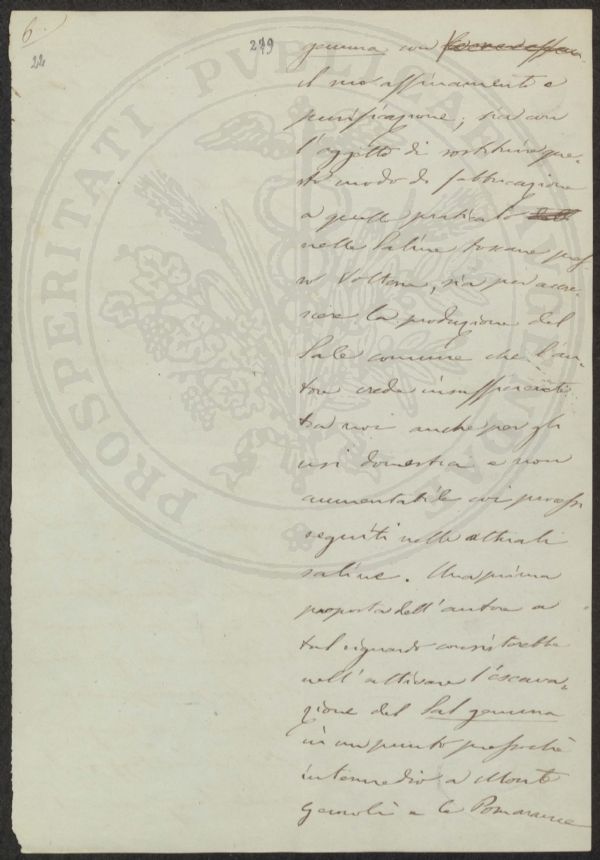 6.
22
279
gemma con
il suo affinamento e
purificazione; sia con
l'oggetto di sostituire que-
sto modo di fabbricazione
a quello praticato
nelle Saline toscane pres-
so Volterra, sia per accre-
scere la produzione del
Sale comune che l'au-
tore crede insufficiente
tra noi anche per gli
usi domestici e non
aumentabile coi processi
seguiti nelle attuali
saline. Una prima
proposta dell'autore a
tal riguardo consisterebbe
nell'attivare l'escava-
zione del Sal gemma
in un punto pressochè
intermedio a Monte
gemoli e le Pomarance
PROSPERITATI PVBLICAE AVGENDAE